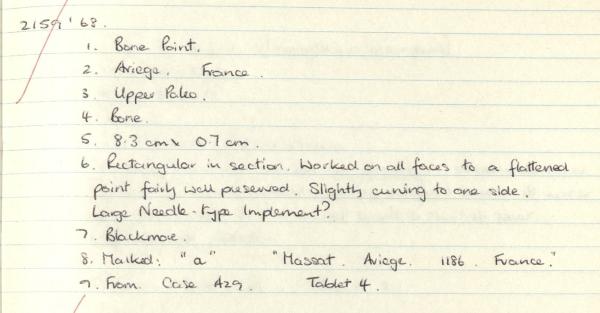 2159'63.
1. Bone Point.
2. Ariege. France.
3. Upper Paleo.
4. Bone.
5. 8.3 cm x 0.7 cm.
6. Rectangular in section. Worked on all faces to a flattened
point fairly well preserved. Slightly curving to one side.
Large Needle-type Implement?
7. Blackmore.
8. Marked: "a" "Massat. Ariege. 1186. France."
9. From Case A29. Tablet 4.